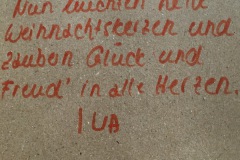 Nun leuchten helle
Weihnachtskerzen und
zaubern Glück und
Freud' in alle Herzen.
IUA